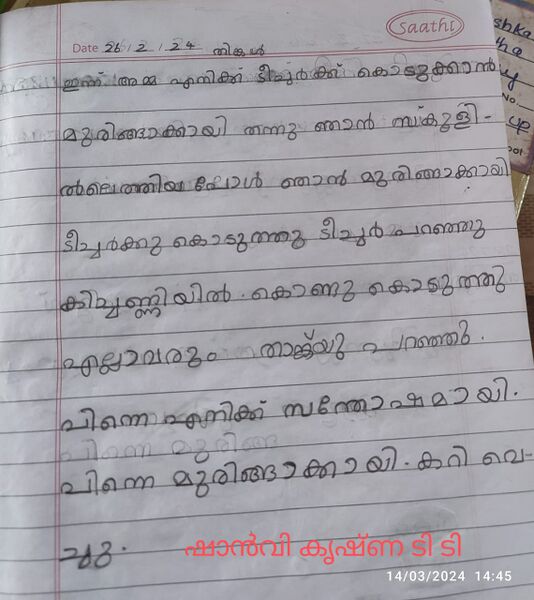 saathi
Date 26/2/24 തിങ്കൾ
ഇന്ന് അമ്മ എനിക്ക് ടീച്ചർക്ക് കൊടുക്കാൻ
മുരിങ്ങാക്കായി തന്നു ഞാൻ സ്കുളി-
ലെത്തിയപ്പോൾ ഞാൻ മുരിങ്ങാക്കായി
ടീച്ചർക്കു കൊടുത്തു ടീച്ചർ പറഞ്ഞു
കിച്ചണ്ണിയിൽ. കൊണ്ടു കൊടുത്തു
എല്ലാവരും താങ്ക്യു പറഞ്ഞു.
പിന്നെ എനിക്ക് സന്തോഷമായി.
പിന്നെ മുരിങ്ങാക്കായി. കറി വെ-
ച്ചു.
ഷാൻവി കൃഷ്ണ ടി ടി
14/03/2024 14:45
shka
No.